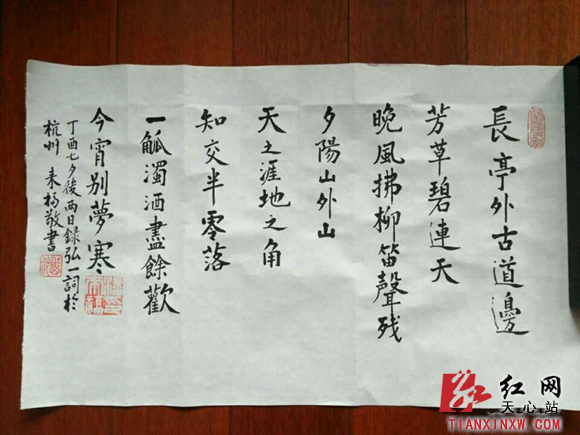 長亭外古道邊
芳草碧連天
晚風拂柳笛聲残
夕陽山外山
天之涯地之角
知交半零落
一觚濁酒盡餘歡
今宵别夢寒
丁酉七夕後两日錄弘一詞於
杭州 來楊敬書
红网
天心站
TIANXINXW.COM